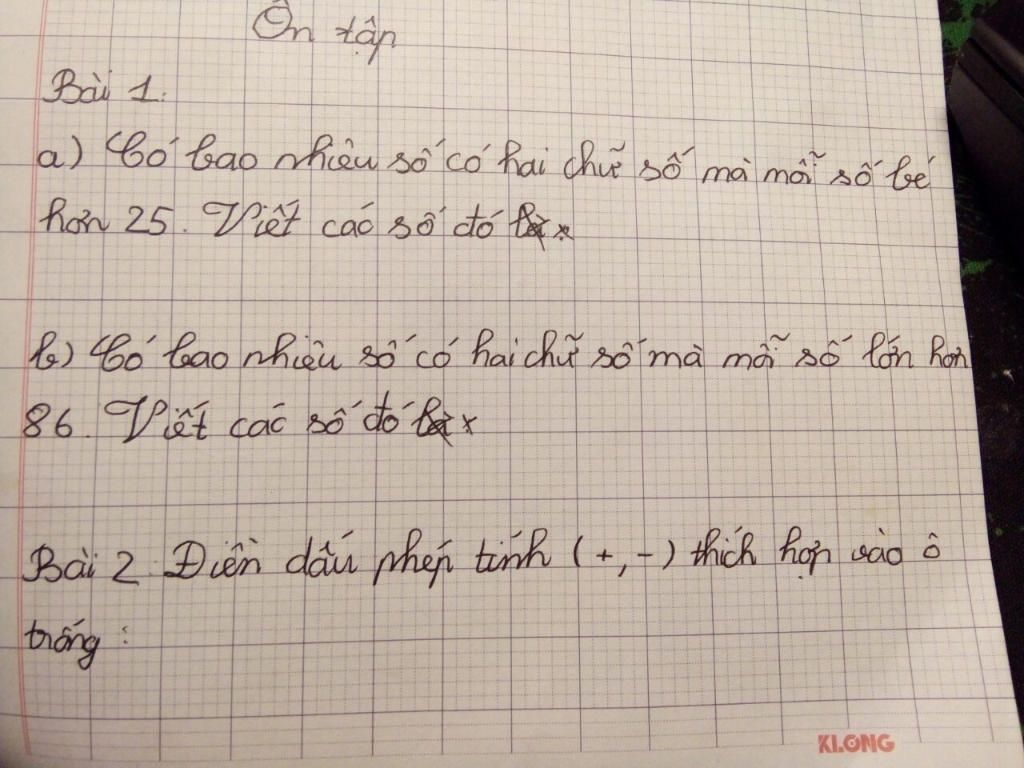 Ôn tập
Bài 1.
a) Có bao nhiêu số có hai chữ số mà mỗi số bé
hơn 25. Viết các số đó
b) Có bao nhiêu số có hai chữ số mà mỗi số lớn hơn
86. Viết các số đó
Bài 2. Điền dấu phép tính (+, -) thích hợp vào ô
trống :
KLONG